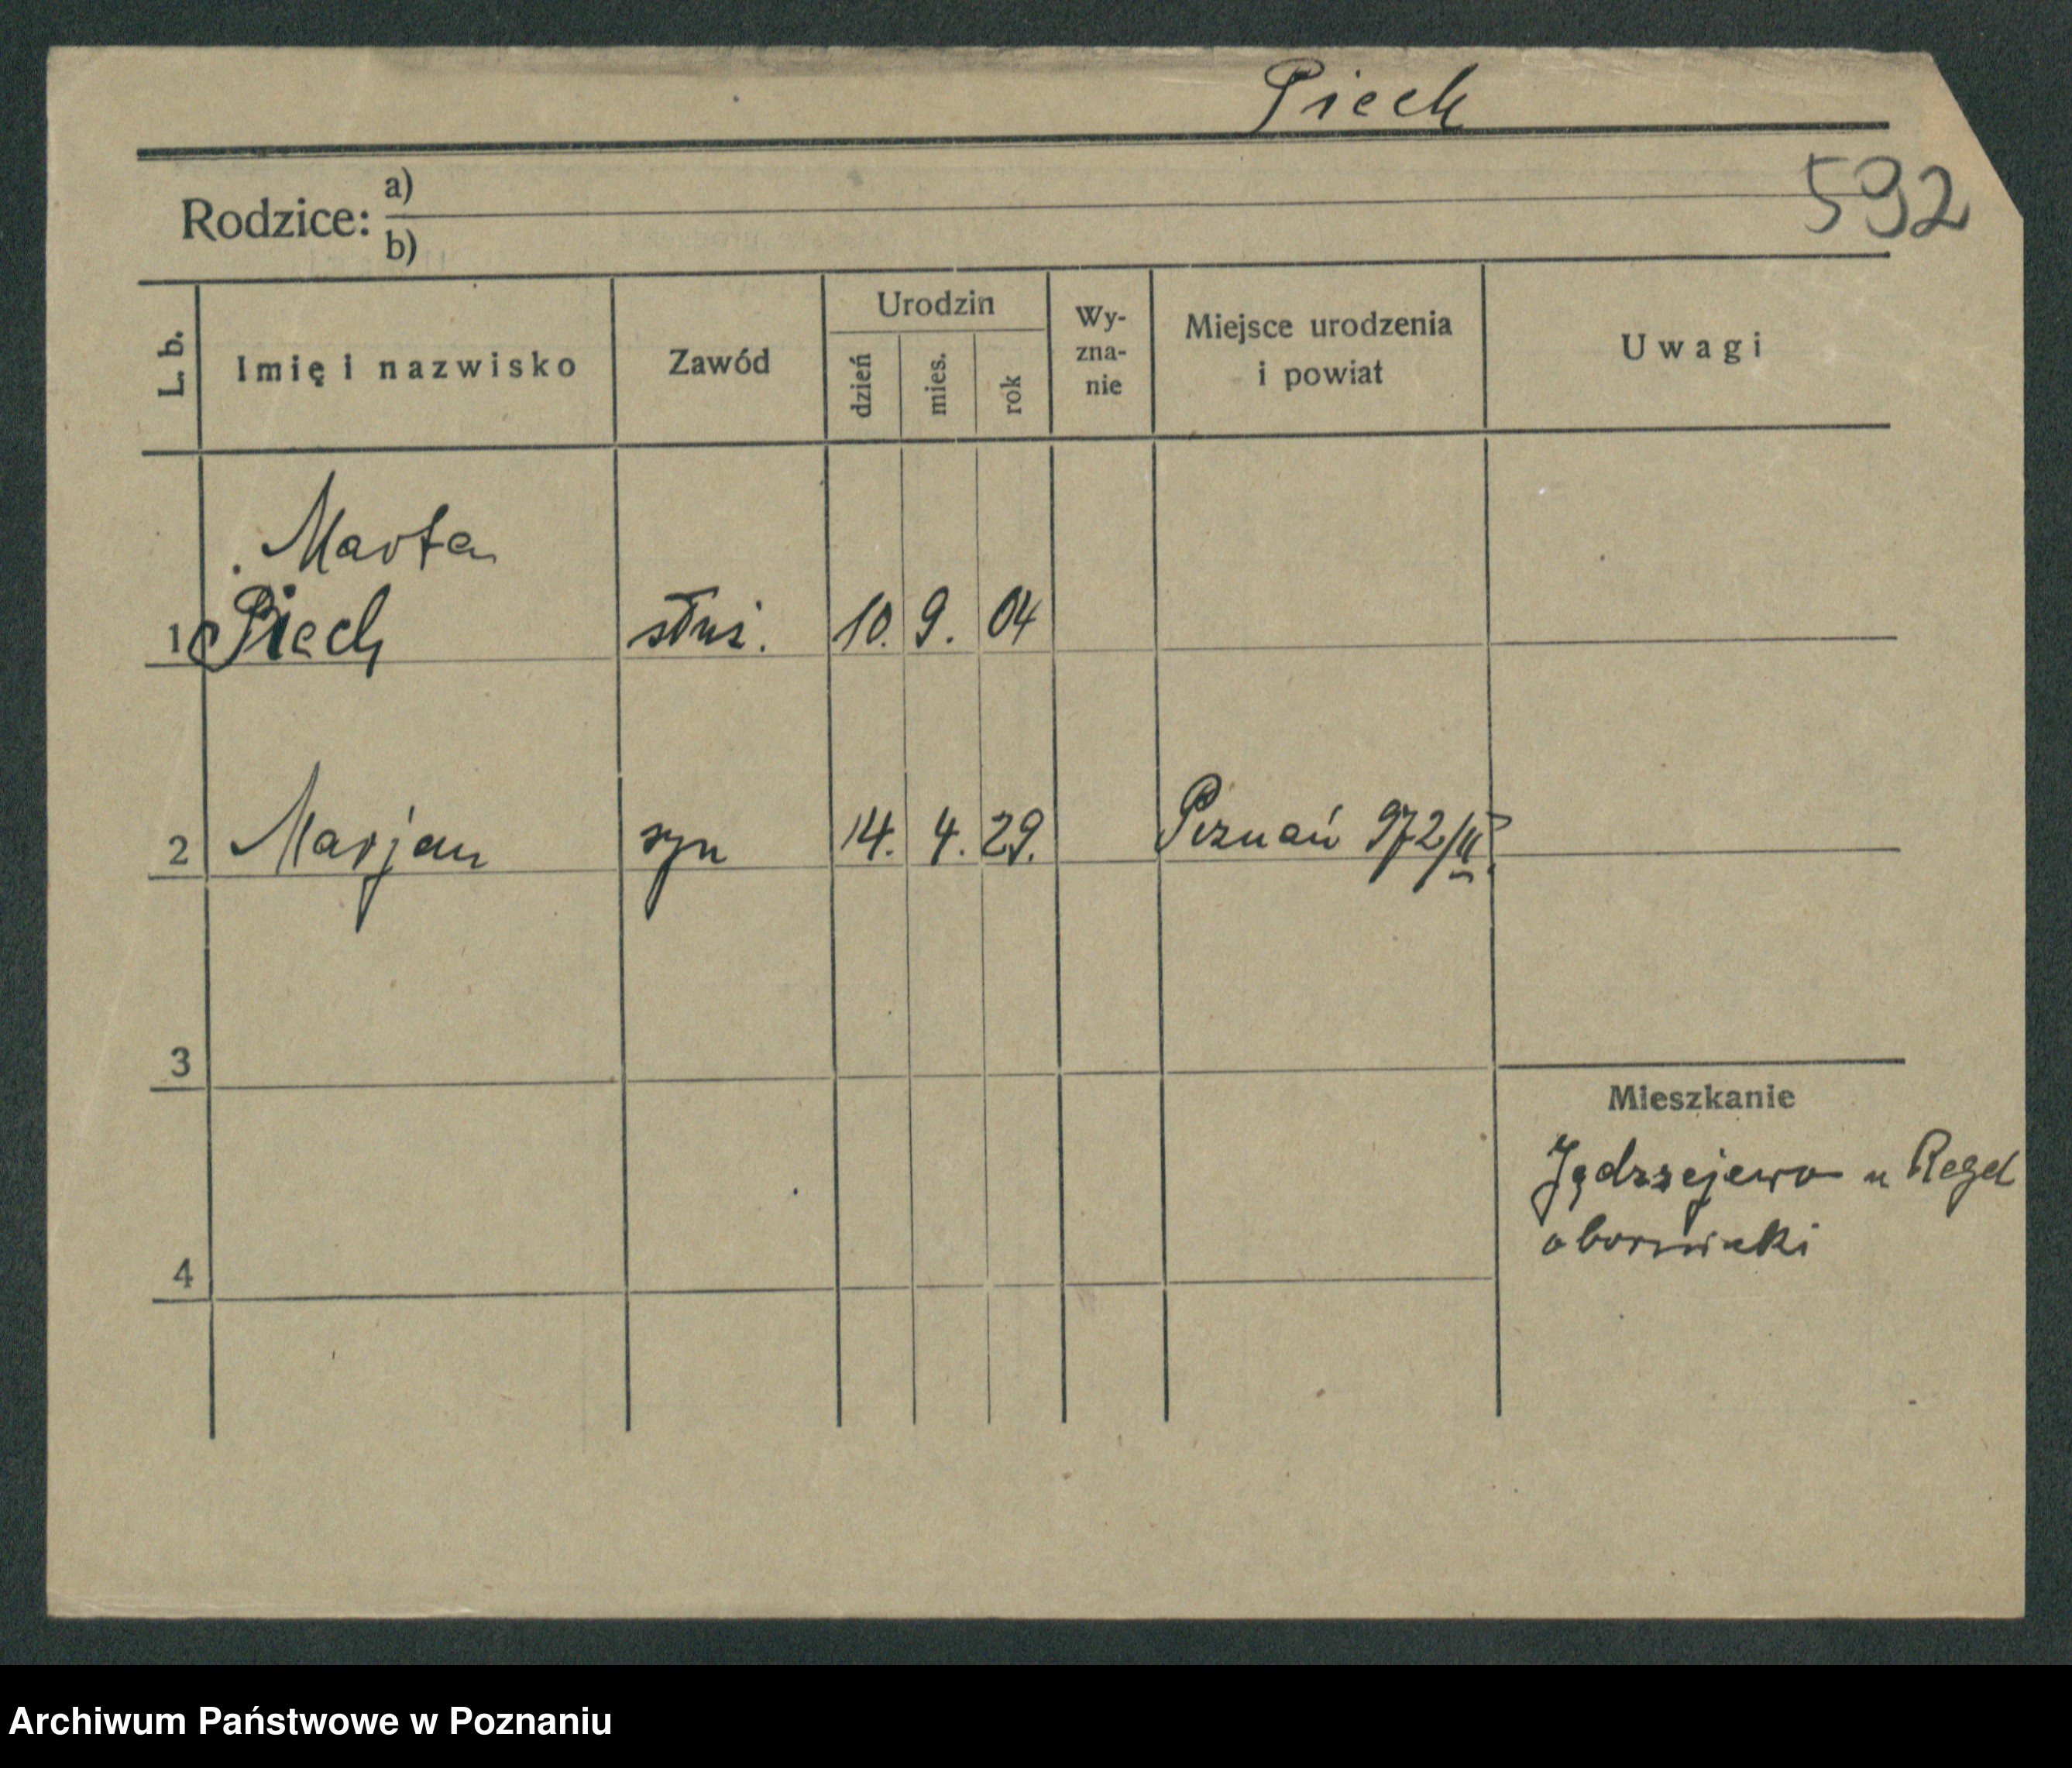 Piech
592
Rodzice: a)
b)
L. b.
Imię i nazwisko
Zawód
Urodzin
dzień
mies.
rok
Wy-
zna-
nie
Miejsce urodzenia
i powiat
Uwagi
Marta
1 Piech służ. 10. 9. 04
2 Marjan syn 14. 4. 29. Poznań 972/III.
3
Mieszkanie
Jędrzejewo u
obornicki
4
Archiwum Państwowe w Poznaniu